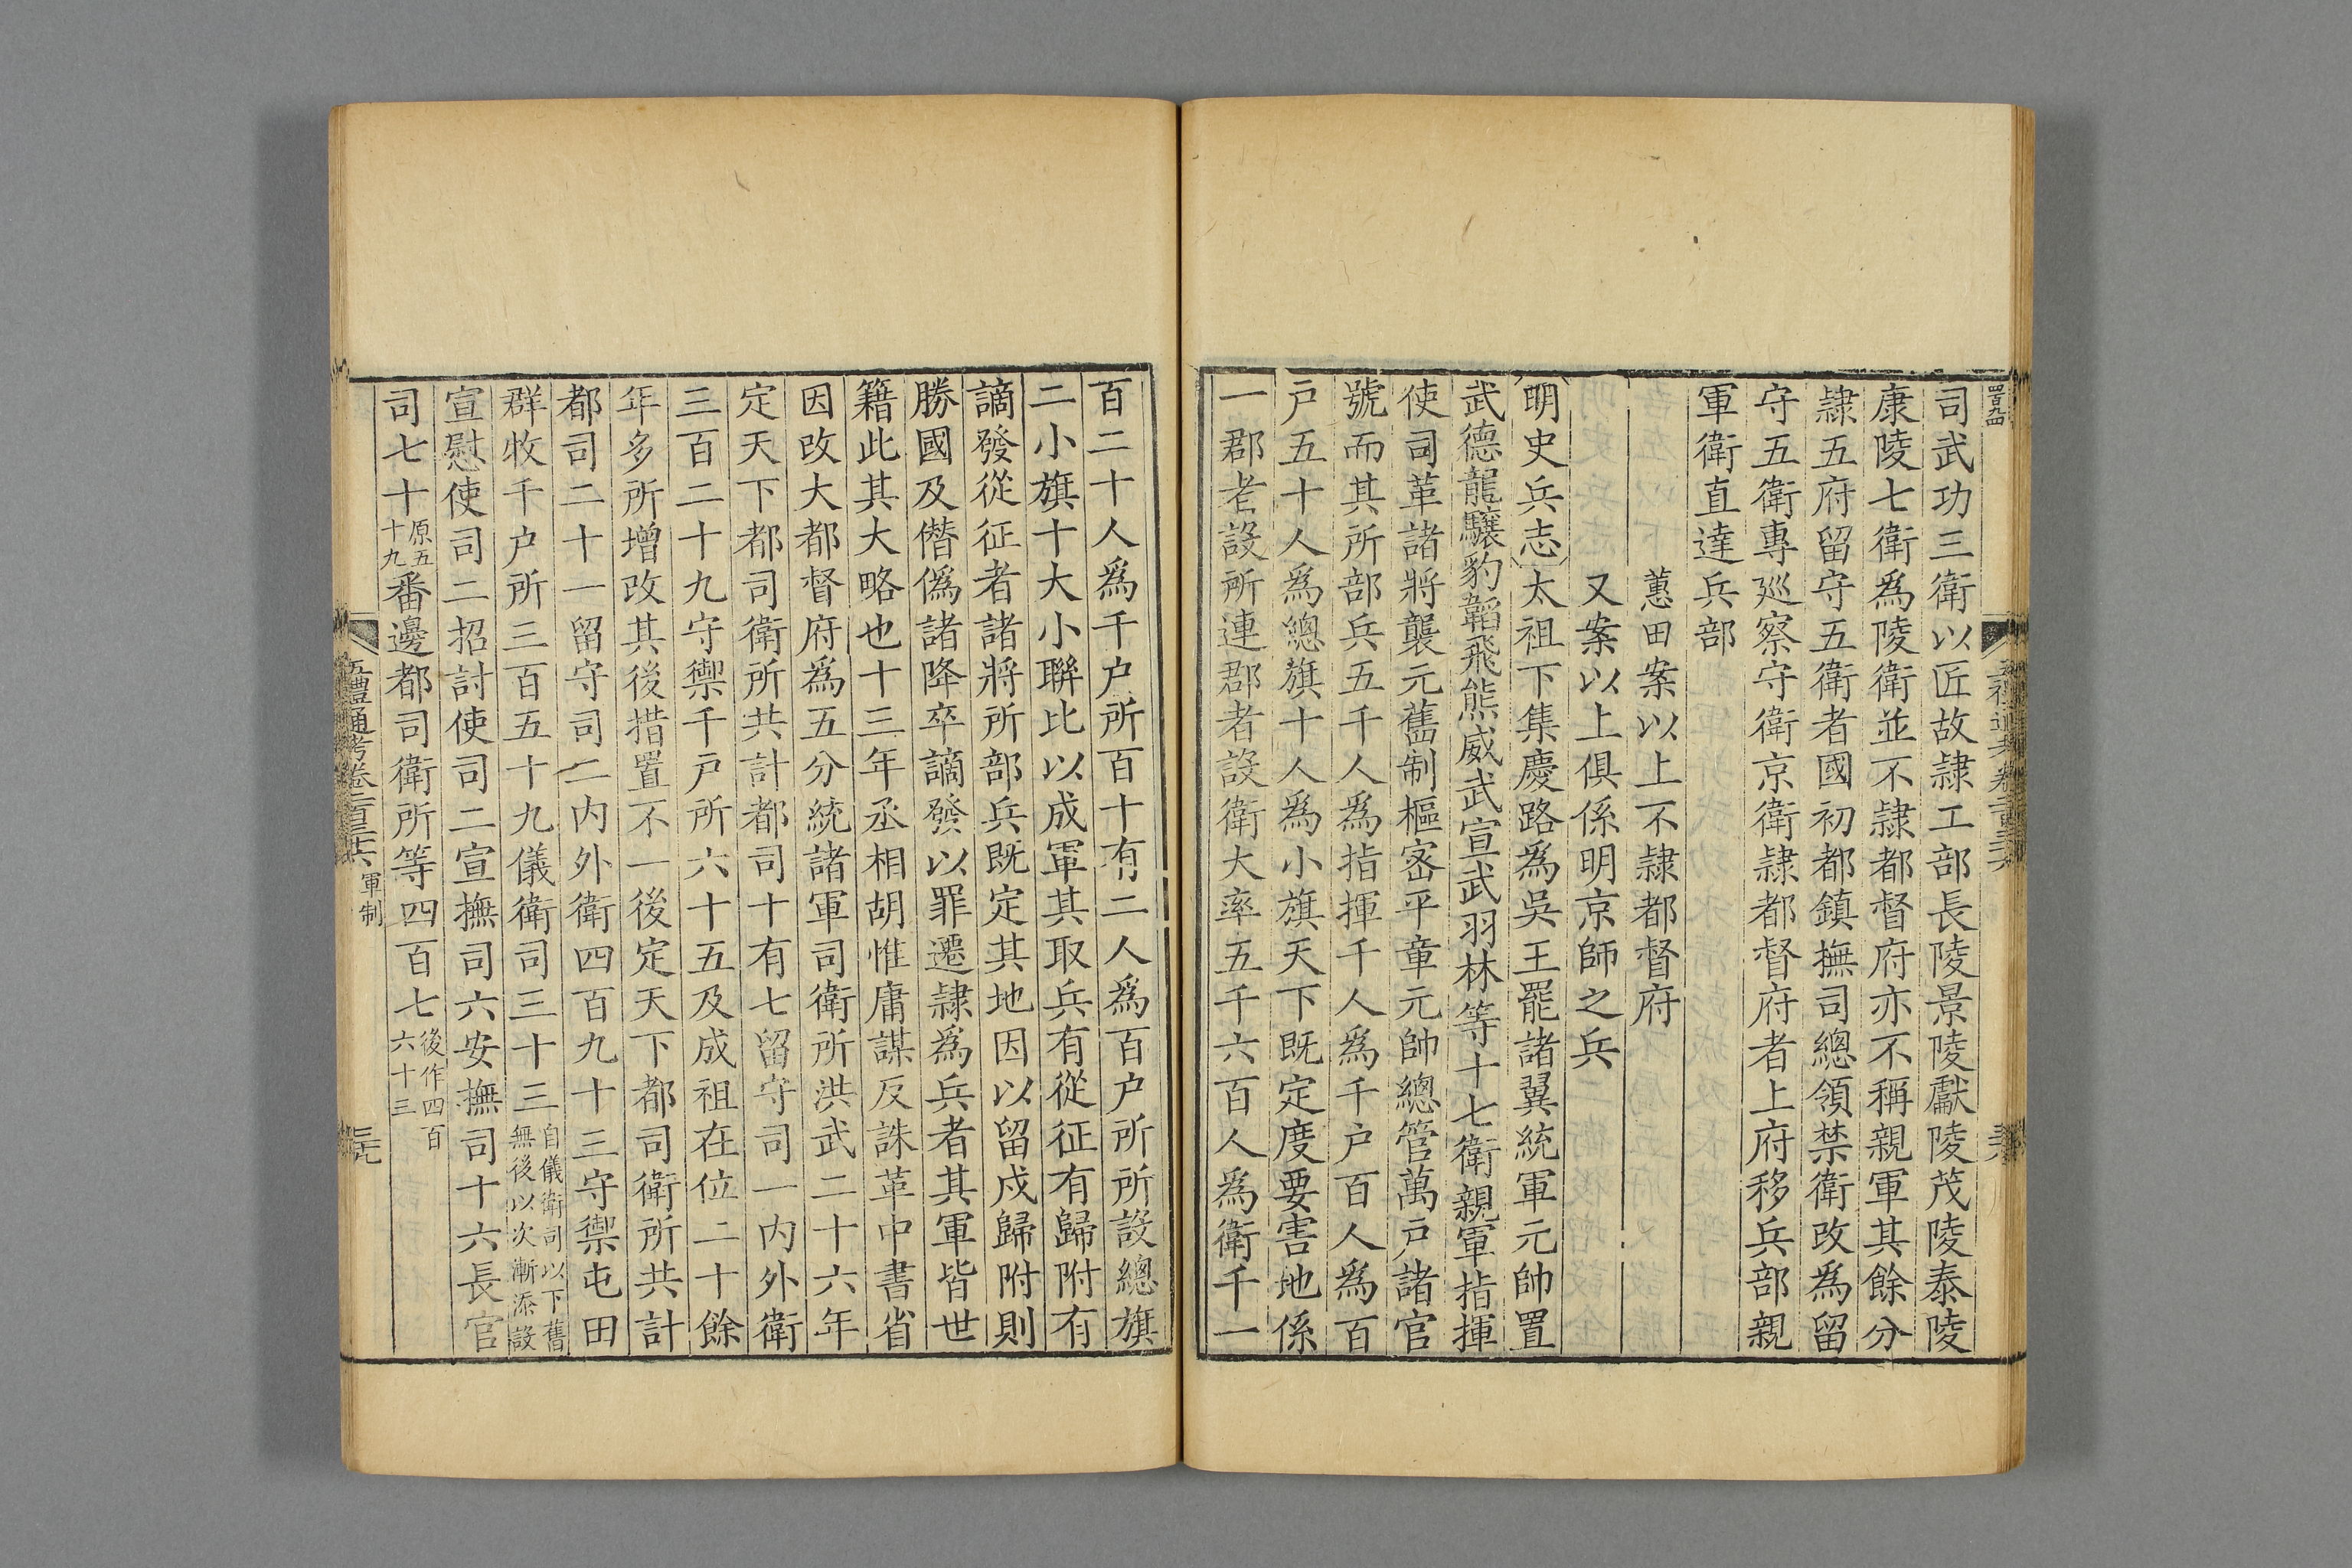 司武功三衛以匠故隷工部長陵景陵獻陵茂陵泰陵
康陵七衛爲陵衛並不隷都督府亦不稱親軍其餘分
隷五府留守五衛者國初都鎮撫司總領禁衛改爲留
守五衛專廵察守衛京衛隷都督府者上府移兵部親
軍衛直達兵部
蕙田案以上不隷都督府
又案以上俱係明京師之兵
明史兵志太祖下集慶路爲吳王罷諸翼統軍元帥置
武德龍驤豹韜飛熊威武宣武羽林等十七衛親軍指揮
使司革諸將襲元舊制樞密平章元帥總管萬戶諸官
號而其所部兵五千人爲指揮千人爲千户百人爲百
戸五十人爲總旗十人爲小旗天下既定度要害地係
一郡者設所連郡者設衛大率五千六百人爲衛千一
百二十人爲千户所百十有二人爲百户所所設總旗
二小旗十大小聯比以成軍其取兵有從征有歸附有
謫發從征者諸將所部兵既定其地因以留戍歸附則
勝國及僭僞諸降卒謫發以罪遷隷爲兵者其軍皆世
籍此其大略也十三年丞相胡惟庸謀反誅革中書省
因改大都督府爲五分統諸軍司衛所洪武二十六年
定天下都司衛所共計都司十有七留守司一内外衛
三百二十九守禦千戸所六十五及成祖在位二十餘
年多所增改其後措置不一後定天下都司衛所共計
都司二十一留守司二内外衛四百九十三守禦屯田
群牧千户所三百五十九儀衛司三十三自儀衛司以下舊無後以次漸添設
宣慰使司二招討使司二宣撫司六安撫司十六長官
司七十原五十九番邊都司衛所等四百七後作四百六十三
五禮通考卷二百三十六 軍制